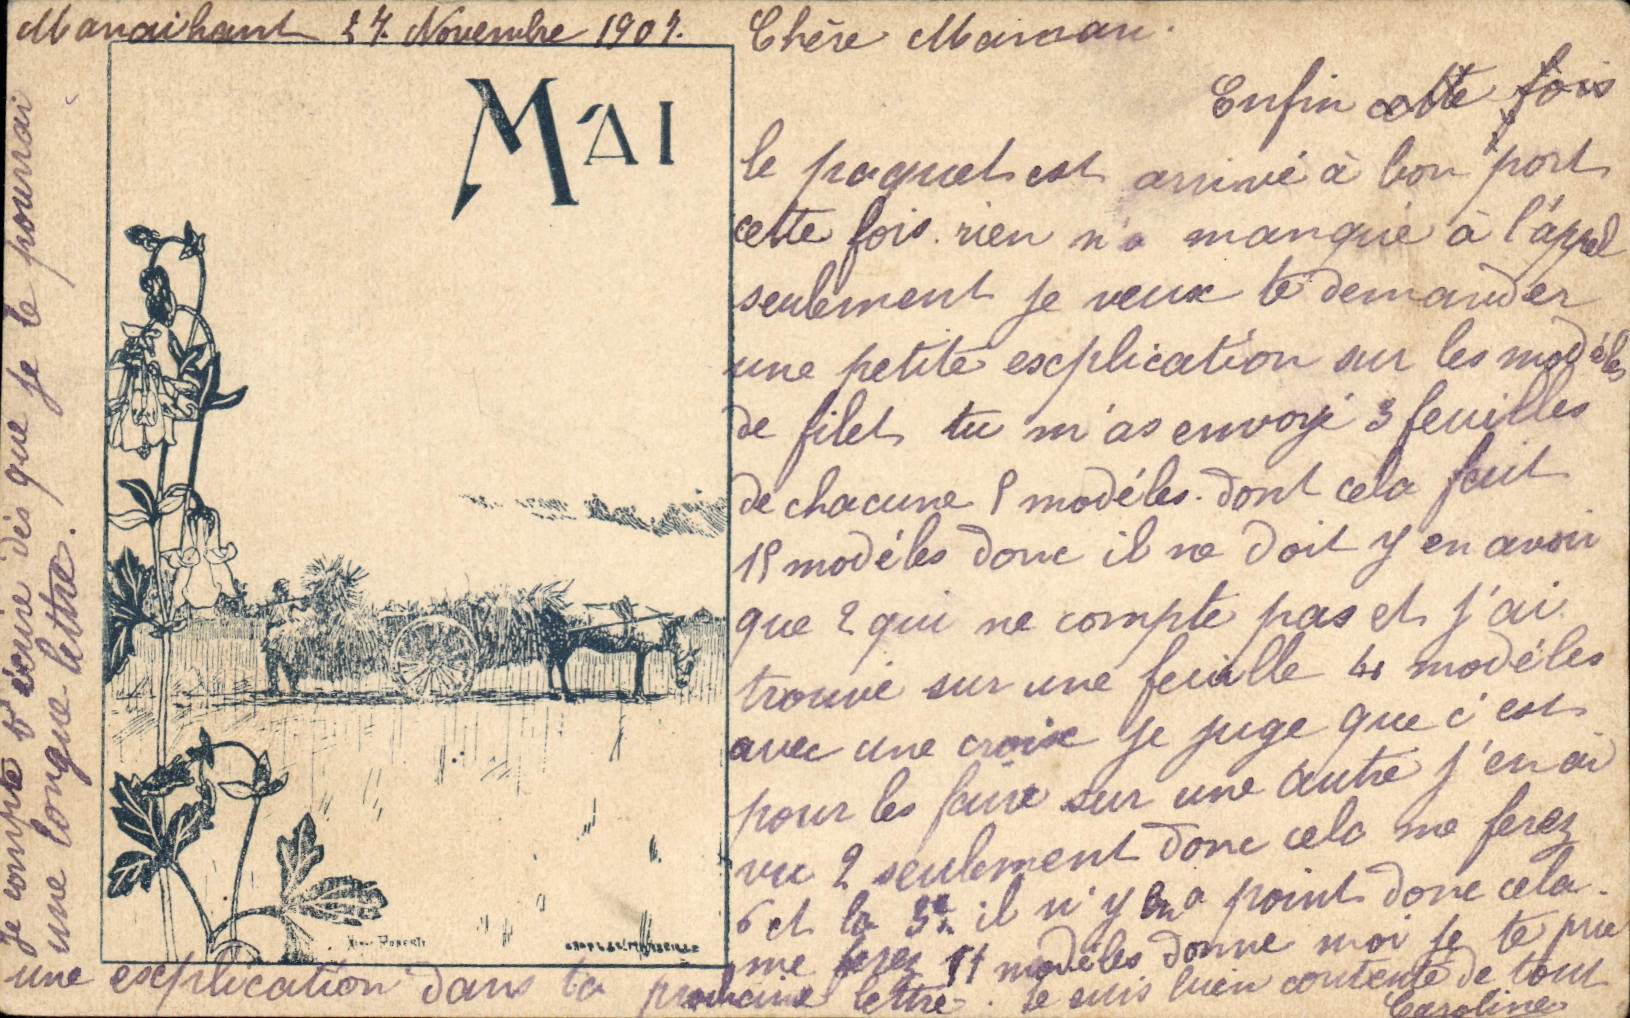 Manaihant 27. Novembre 1907.
MAI
Chère Maman.
Enfin cette fois
le paquet est arrivé à bon port
cette fois. rien n'a manqué à l'áppel
seulement je veux te demander
une petite esxplication sur les modéles
de filet tu m'as envoyé 3 feuilles
de chacune 5 modéles. dont cela fait
15 modéles donc il ne doit y en avoir
que 2 qui ne compte pas et j'ai
trouvé sur une feuille 4 modéles
avec une croix je juge que c'est
pour les faire sur une autre j'en ai
vu 2 seulement donc cela me ferez
6 et la 3e il n'y en a point donc cela
me ferez 11 modéles donne moi je te prie
une esxplication dans ta prochaine lettre. Je suis bien contente de tout
Caroline
Je compte t'écrire dés que je le pourrai
une longue lettre.